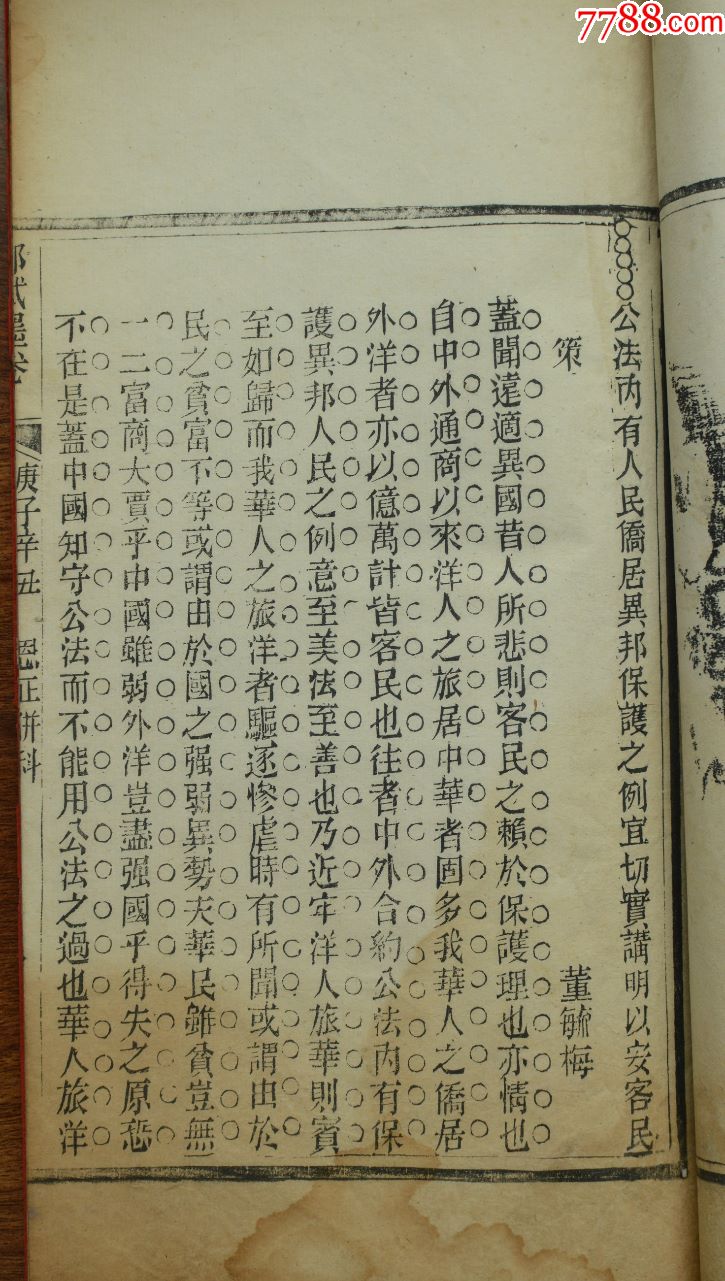 7788.com
公法內有人民僑居異邦保護之例宜切實講明以安客民
策
董毓梅
蓋聞遠適異國昔人所悲則客民之賴於保護理也亦情也
自中外通商以來洋人之旅居中華者固多我華人之僑居
外洋者亦以億萬計皆客民也往者中外合約公法內有保
護異邦人民之例意至美法至善也乃近年洋人旅華則賓
至如歸而我華人之旅洋者驅逐慘虐時有所聞或謂由於
民之貧富不等或謂由於國之强弱異勢夫華民雖貧豈無
一二富商大賈乎中國雖弱外洋豈盡强國乎得失之原恐
不在是蓋中國知守公法而不能用公法之過也華人旅洋
試墨卷 庚子辛丑 恩正併科